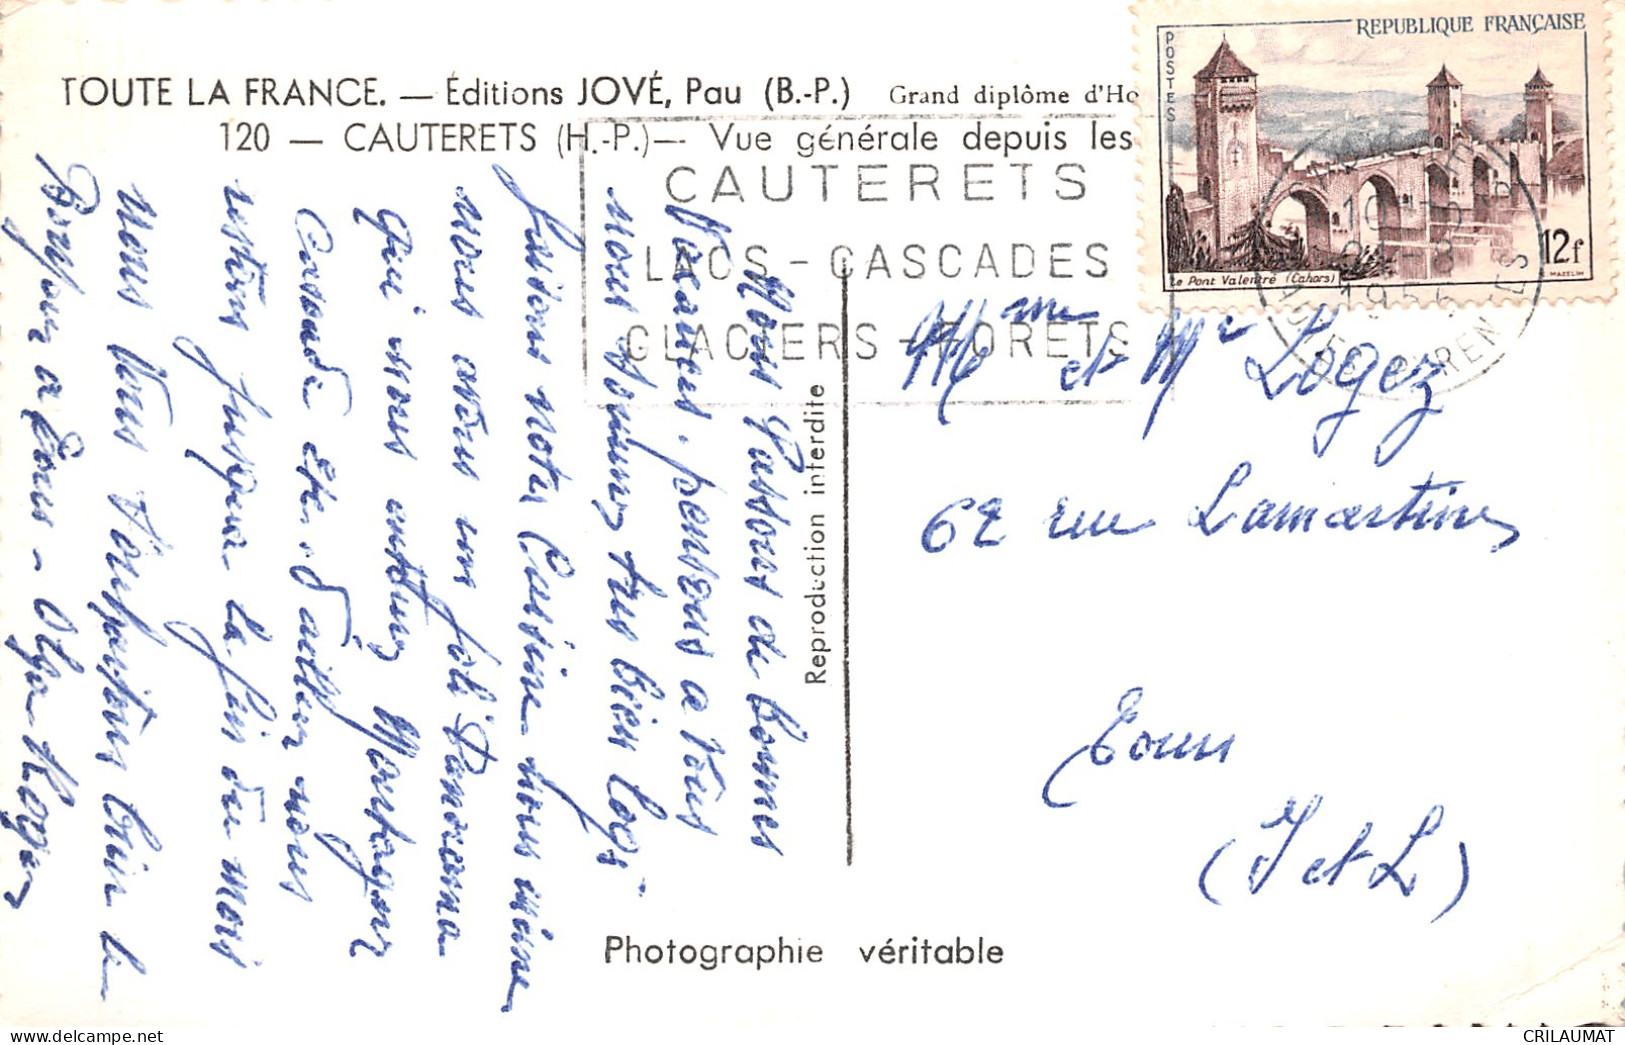 TOUTE LA FRANCE. — Éditions JOVÉ, Pau (B.-P.) Grand diplôme d'Ho
120 — CAUTERETS (H.-P.) — Vue générale depuis les
REPUBLIQUE FRANÇAISE
POSTES
12f
Le Pont Valentré (Cahors)
MAZELIN
CAUTERETS
LACS - CASCADES
GLACIERS - FORETS
10 H 15
1956
HTES PYRENEES
Mme et Mr Logez
62 rue Lamartine
Tours
(I et L)
Reproduction interdite
Nous Passons de bonnes
Vacances. pensons a Vous
Nous sommes tres bien logé
faisons notre Cuisine nous même
Nous avons un joli Panorama
Qui nous entoure Montagne
Cascade etc. D'ailleurs nous
restons jusqu'a la fin du mois
Nous Vous
Bonjour a Tous - Olga Roger
Photographie véritable
CRILAUMAT